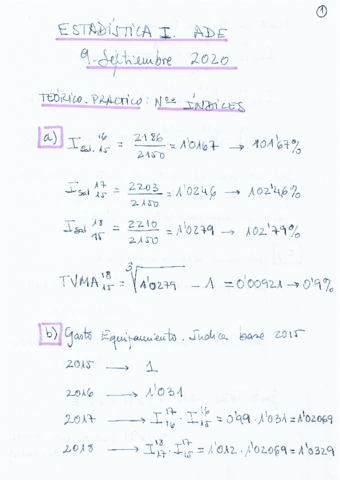 1
ESTADÍSTICA I. ADE
9. Septiembre 2020
TEÓRICO. PRÁCTICO: Nºs ÍNDICES
a) I sal. 16 15 = 2186 / 2150 = 1'0167 → 101'67%
I sal 17 15 = 2203 / 2150 = 1'0246 → 102'46%
I sal 18 15 = 2210 / 2150 = 1'0279 → 102'79%
TVMA 18 15 = ∛1'0279 - 1 = 0'00921 → 0'9%
b) Gasto Equipamiento. Indice base 2015
2015 → 1
2016 → 1'031
2017 → I 17 16 · I 16 15 = 0'99 · 1'031 = 1'02069
2018 → I 18 17 · I 17 15 = 1'012 · 1'02069 = 1'0329